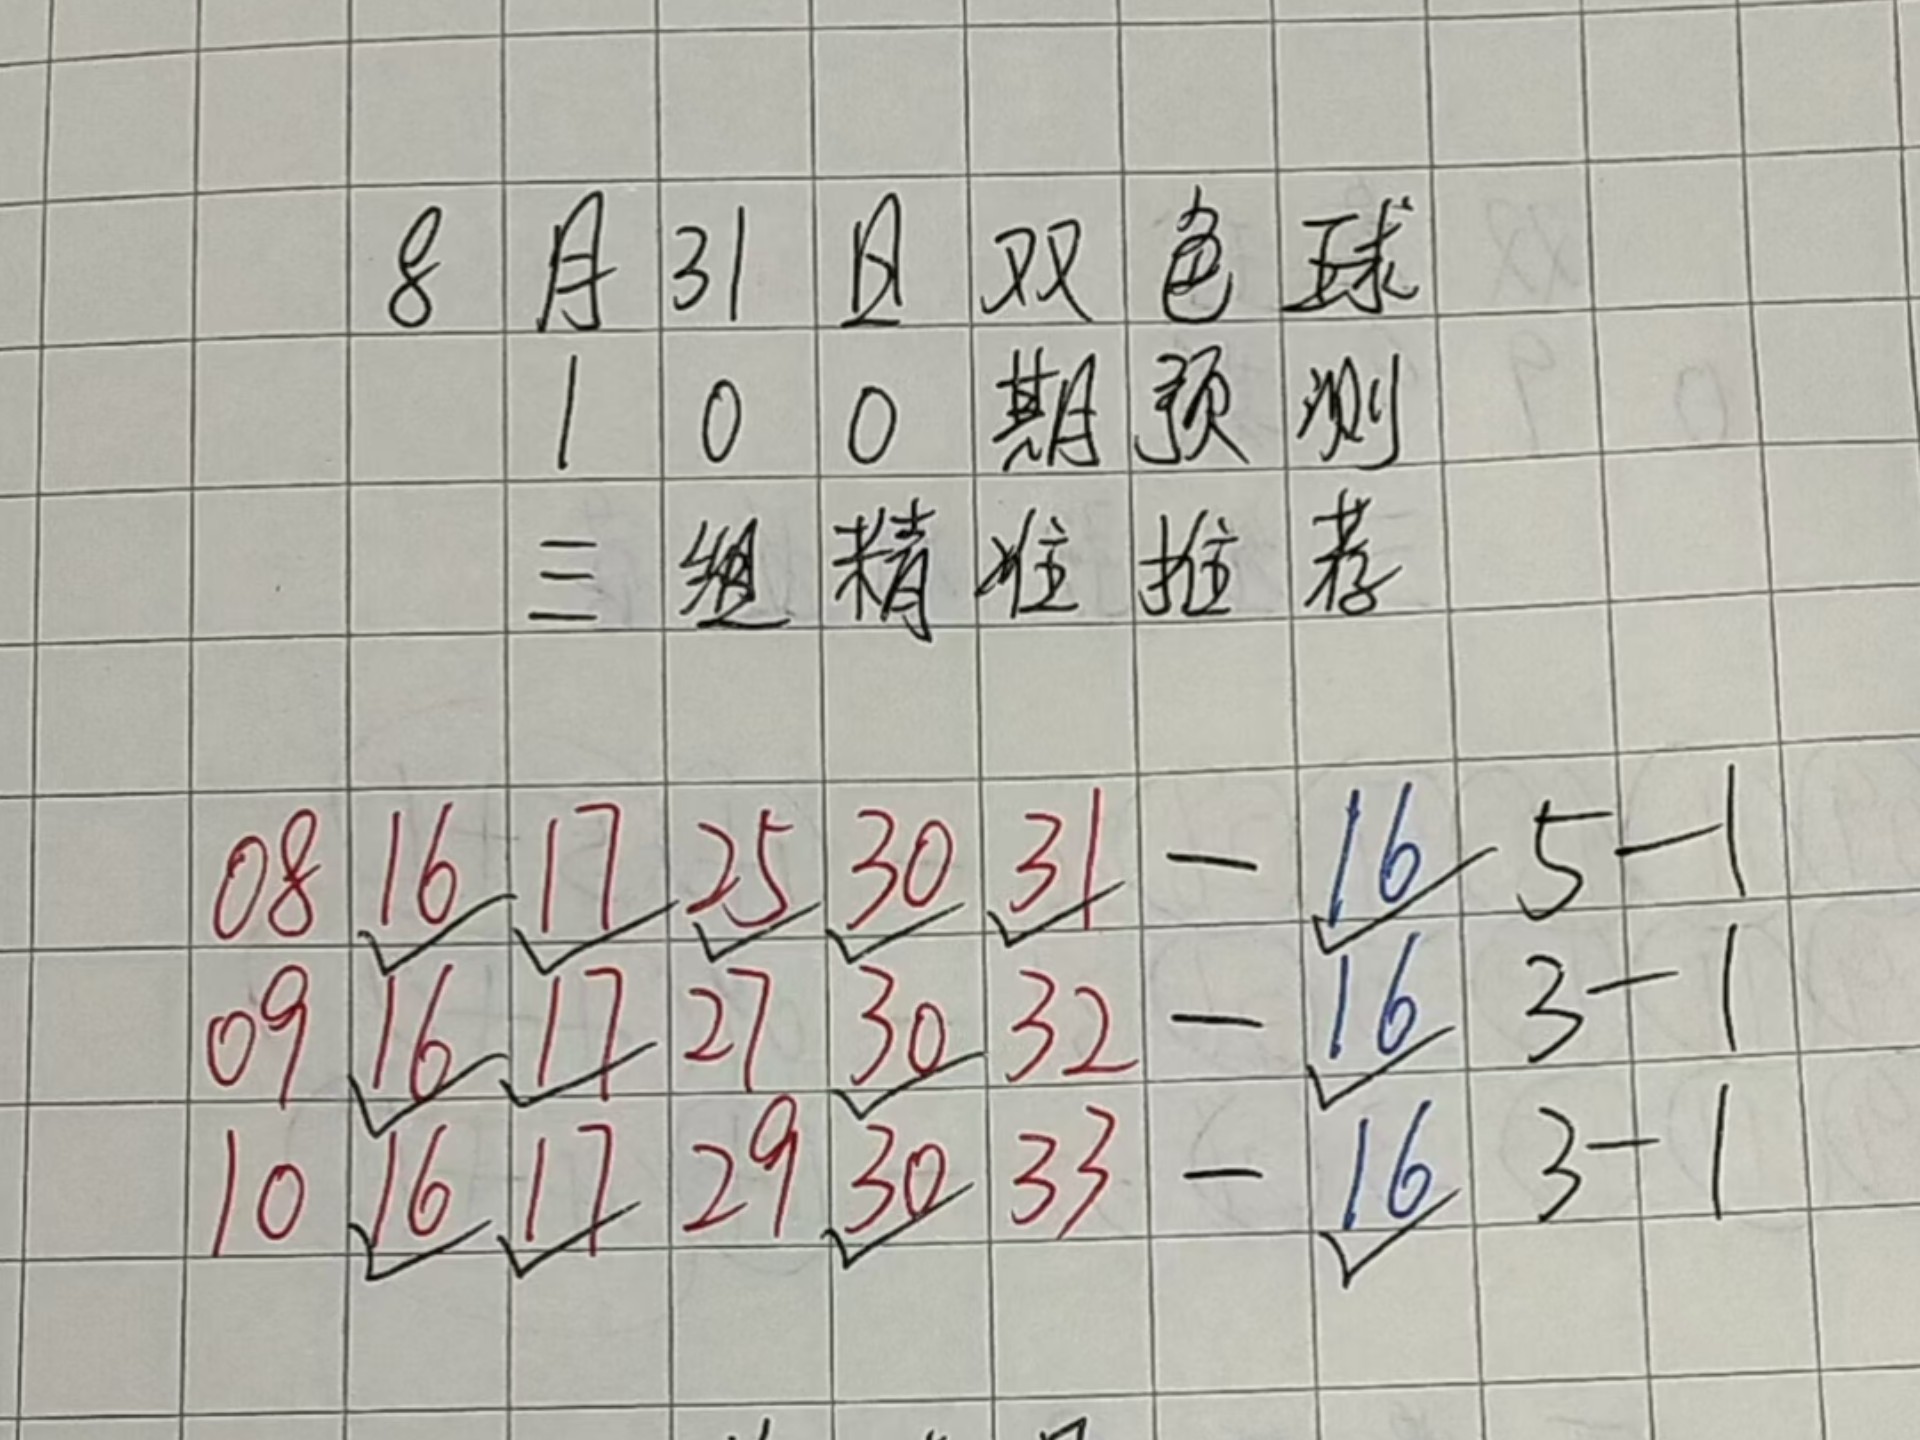 8月31日双色球
100期预测
三组精准推荐
08 16 17 25 30 31 — 16 5—1
09 16 17 27 30 32 — 16 3—1
10 16 17 29 30 33 — 16 3—1